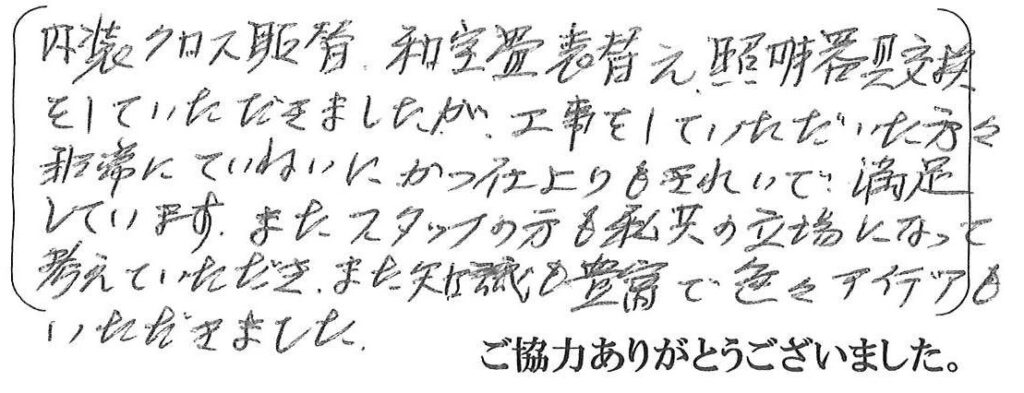 内装クロス販替、和室畳表替え、照明器具交換
をしていただきましたが、工事をしていただいた方々
非常にていねいに、かつ仕上りもきれいで、満足
しています。またスタッフの方も私共の立場になって
考えていただき、また知識も豊富で色々アイデアも
いただきました。
ご協力ありがとうございました。